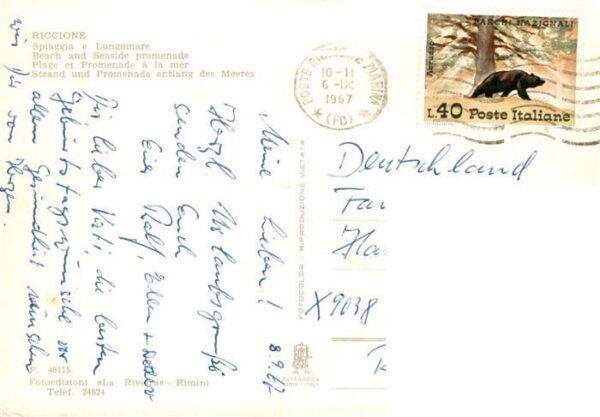 RICCIONE
Spiaggia e Lungomare
Beach and Seaside promenade
Plage et Promenade à la mer
Strand und Promenade entlang des Meeres
POSTE RICCIONE MARINA
10-11
6-IX
1967
(FO)
PARCHI NAZIONALI
Abruzzo
L.40 Poste Italiane
Meine Lieben!
8.9.67
Herzl. Urlaubsgrüße
senden Euch
Eure Ralf, Ellen + Detlev
Dir lieber Vati, die besten
Geburtstagswünsche vor
allem Gesundheit wünschen
wir Dir von Herzen.
Deutschland
Fam
Ha
X9038
K
FOTOCOLOR - RIPRODUZIONE VIETATA
F. 48115
Fotoedizioni «La Riviera» - Rimini
Telef. 24524